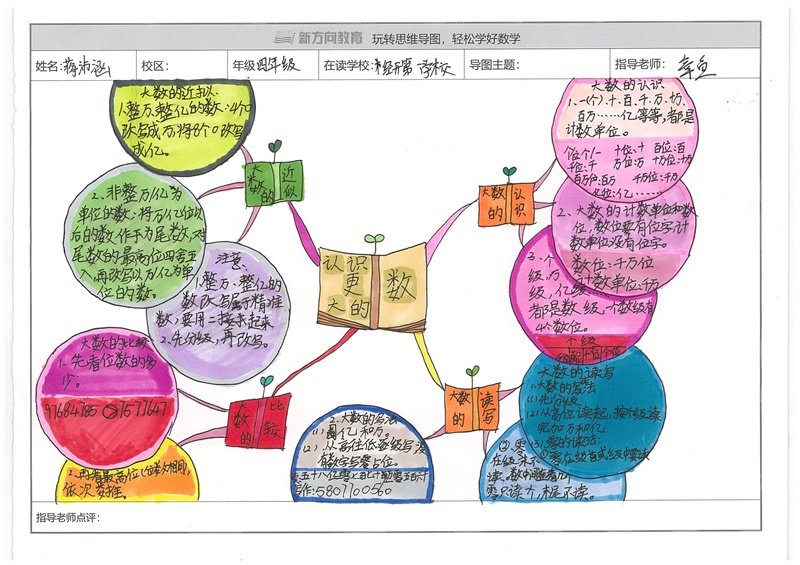 新方向教育 玩转思维导图，轻松学好数学
姓名：
校区：
年级 四年级
在读学校：
导图主题：
指导老师：章鱼
大数的近似
1、整万、整亿的数：4个0
改写成万，将8个0改写
成亿。
2、非整万亿为
单位的数：将万亿位以
后的数作为尾数，对
尾数的最高位四舍五
入，再改写以万亿为单
位的数。
注意：
1、整万、整亿的
数改写属于精准
数，要用=接来起来
2、先分级，再改写。
大数的近似
认识更大的数
大数的认识
大数的认识
1、一(个)、十、百、千、万、
百万……亿等等，都是
计数单位。
个位：个/一 十位：十 百位：百
千位：千 万位：万 十万位：十万
百万位：百万 千万位：千万
亿位：亿……
2、大数的计数单位和数
位，数位要有位字，计
数单位没有位字。
数位：千万位
计数单位：千万
3、个
级、万
级、亿级
都是数级，一个数级有
4个数位。
个级
大数的比较
1、先看位数的多
少。
97684785 > 7677647
2、再看最高位（位数相同），
依次类推。
大数的比较
2、大数的写法
(1) 圈亿和万。
(2) 从高往低逐级写，没
有数字写零占位。
写作：5807700560
大数的读写
大数的读写
1、大数的读法
(1)先分级
(2)从高位读起，按个级读
完加万和亿
(3)零的读法：
①零在级首或级中要读
②零
在级末不
读
零只读一个，末尾不读。
指导老师点评：